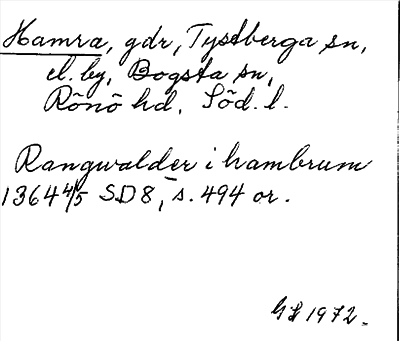 Hamra, gdr, Tystberga sn,
el. by, Bogsta sn,
Rönö hd, Söd. l.
Rangwalder i hambrum
1364 4/5 SD8, s. 494 or.
GL 1972.